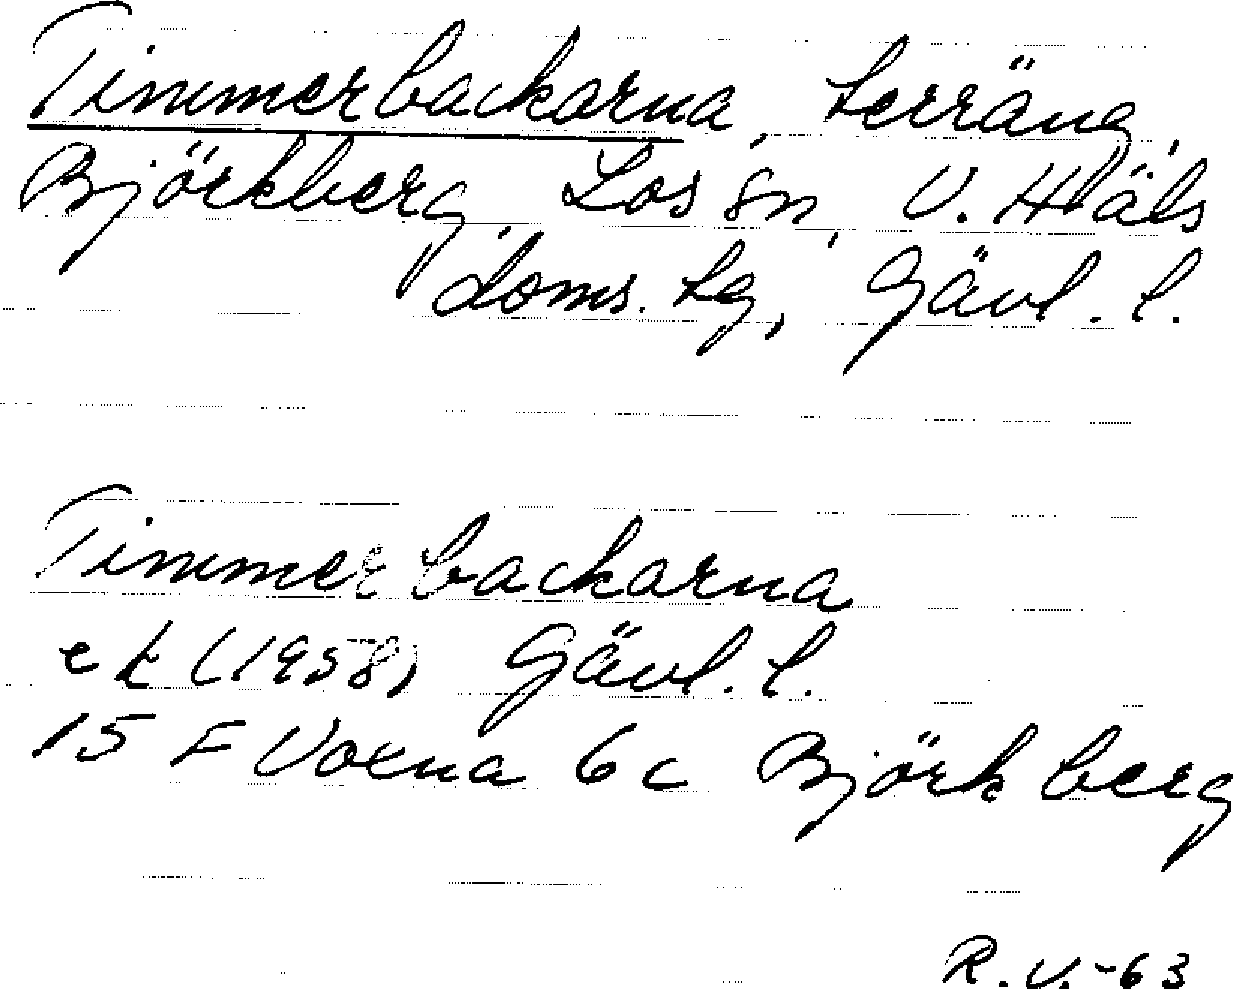 Timmerbackarna, terräng,
Björkberg, Los sn, V. Häls
doms. tg, Gävl. l.
Timmerbackarna
ek (1958) Gävl. l.
15 F Voxna 6c Björkberg
R.V.-63